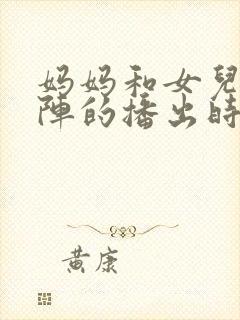 妈妈和女兒
陣的播出時
黃康